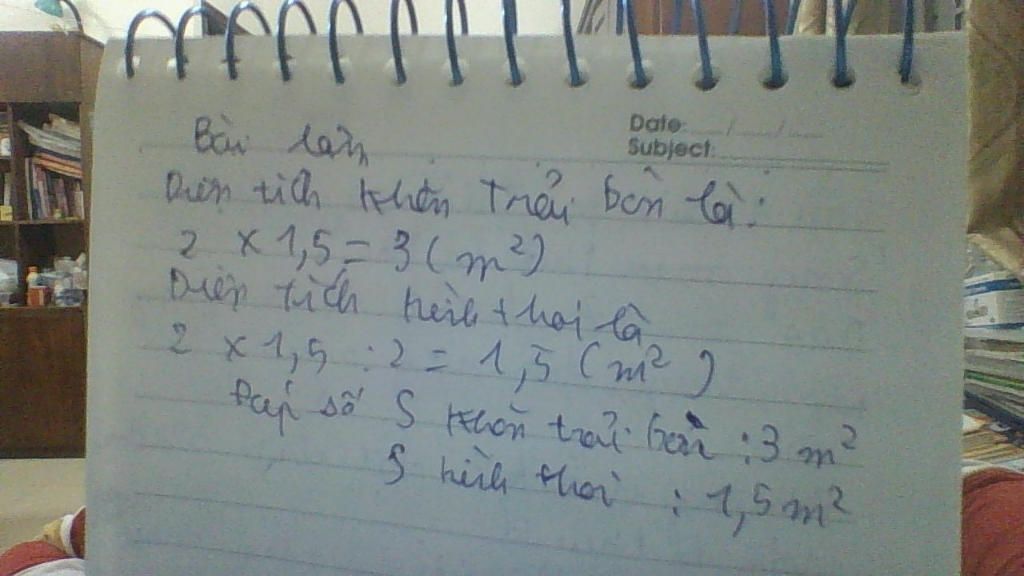 Date: / /
Subject:
Bài làm
Diện tích khăn trải bàn là:
2 x 1,5 = 3 (m²)
Diện tích hình thoi là
2 x 1,5 : 2 = 1,5 (m²)
Đáp số S khăn trải bàn : 3 m²
S hình thoi : 1,5 m²